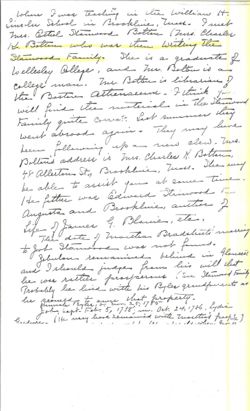 When I was teaching in the William H.
Lincoln School in Brookline, Mass. I met
Mrs. Ethel Stanwood Bolton (Mrs. Charles
K. Bolton who was then writing the
Stanwood Family. She is a graduate of
Wellesley College, and Mr. Bolton is a
College man. Mr. Bolton is librarian of
the Boston Athenaeum. I think you
will find the material in the Stanwood
Family quite correct. Last summer they
went abroad again. They may have
been following up a new clew. Mrs.
Bolton's address is Mrs. Charles K. Bolton,
Allerton St., Brookline, Mass. They may
be able to assist you at some time.
Her father was Edward Stanwood
Augusta and Brookline, author of
Life of James G. Blaine, etc.
The date of Martha Bradstreet's marriage
to Job Stanwood was not found.
Zebulon remained behind in Gloucester
and I should judge from his will that
he was rather prosperous (See Stanwood Family)
Probably he lived with his Byles grandparents as
he seemed to own that property.
John, bapt. Feb. 5, 1758, m. Oct. 24, 1786, Lydia
(He may have remained with